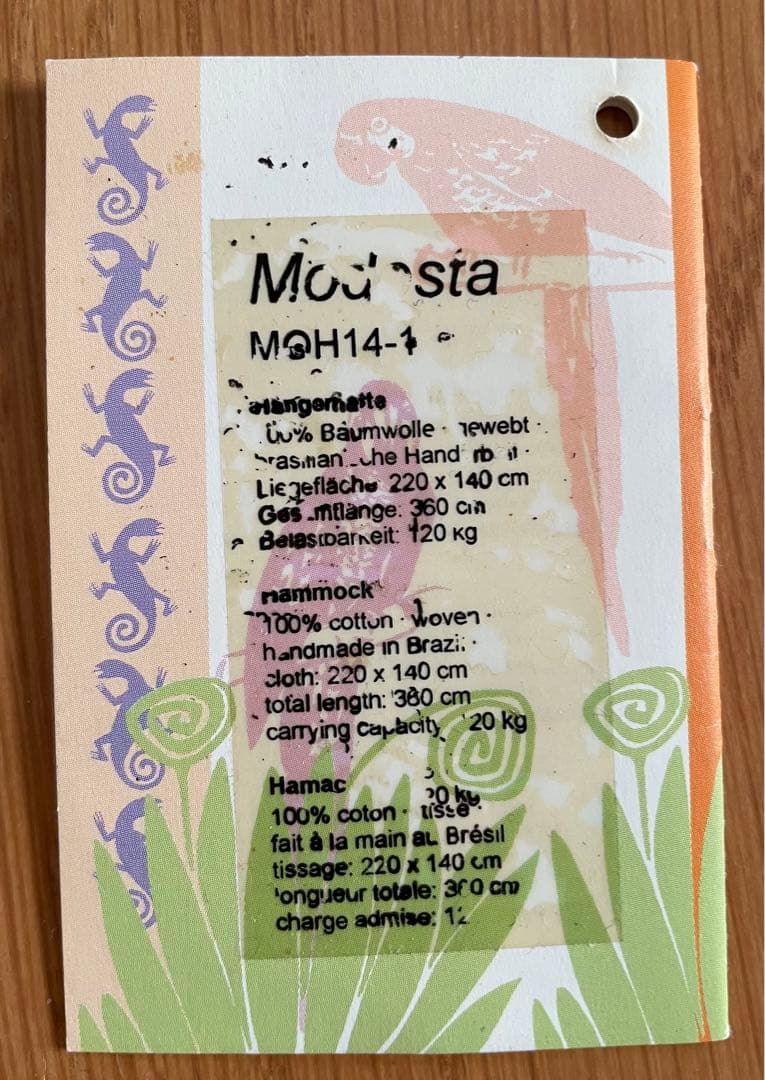 Modesta
MOH14-1
Hängematte
100% Baumwolle · gewebt ·
brasilianische Handarbeit ·
Liegefläche 220 x 140 cm
Gesamtlänge: 360 cm
Belastbarkeit: 120 kg
Hammock
100% cotton · woven ·
handmade in Brazil ·
cloth: 220 x 140 cm
total length: 360 cm
carrying capacity 120 kg
Hamac
100% coton · tissé ·
fait à la main au Brésil
tissage: 220 x 140 cm
longueur totale: 360 cm
charge admise: